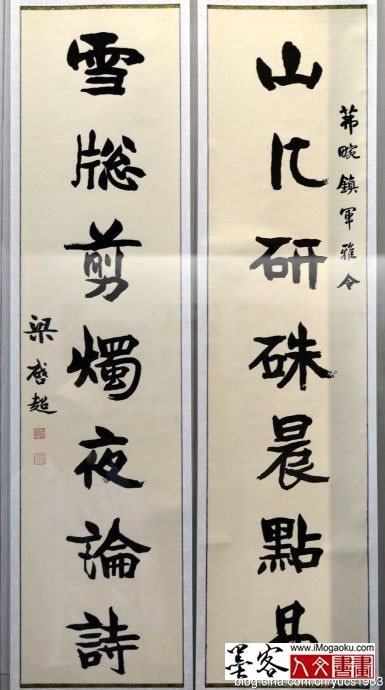 茀畹鎮軍雅令
山研硃晨點易
雪牕剪燭夜論詩
梁啓超
墨客
www.iMogaoku.com
blog.sina.com.cn/yucs1983